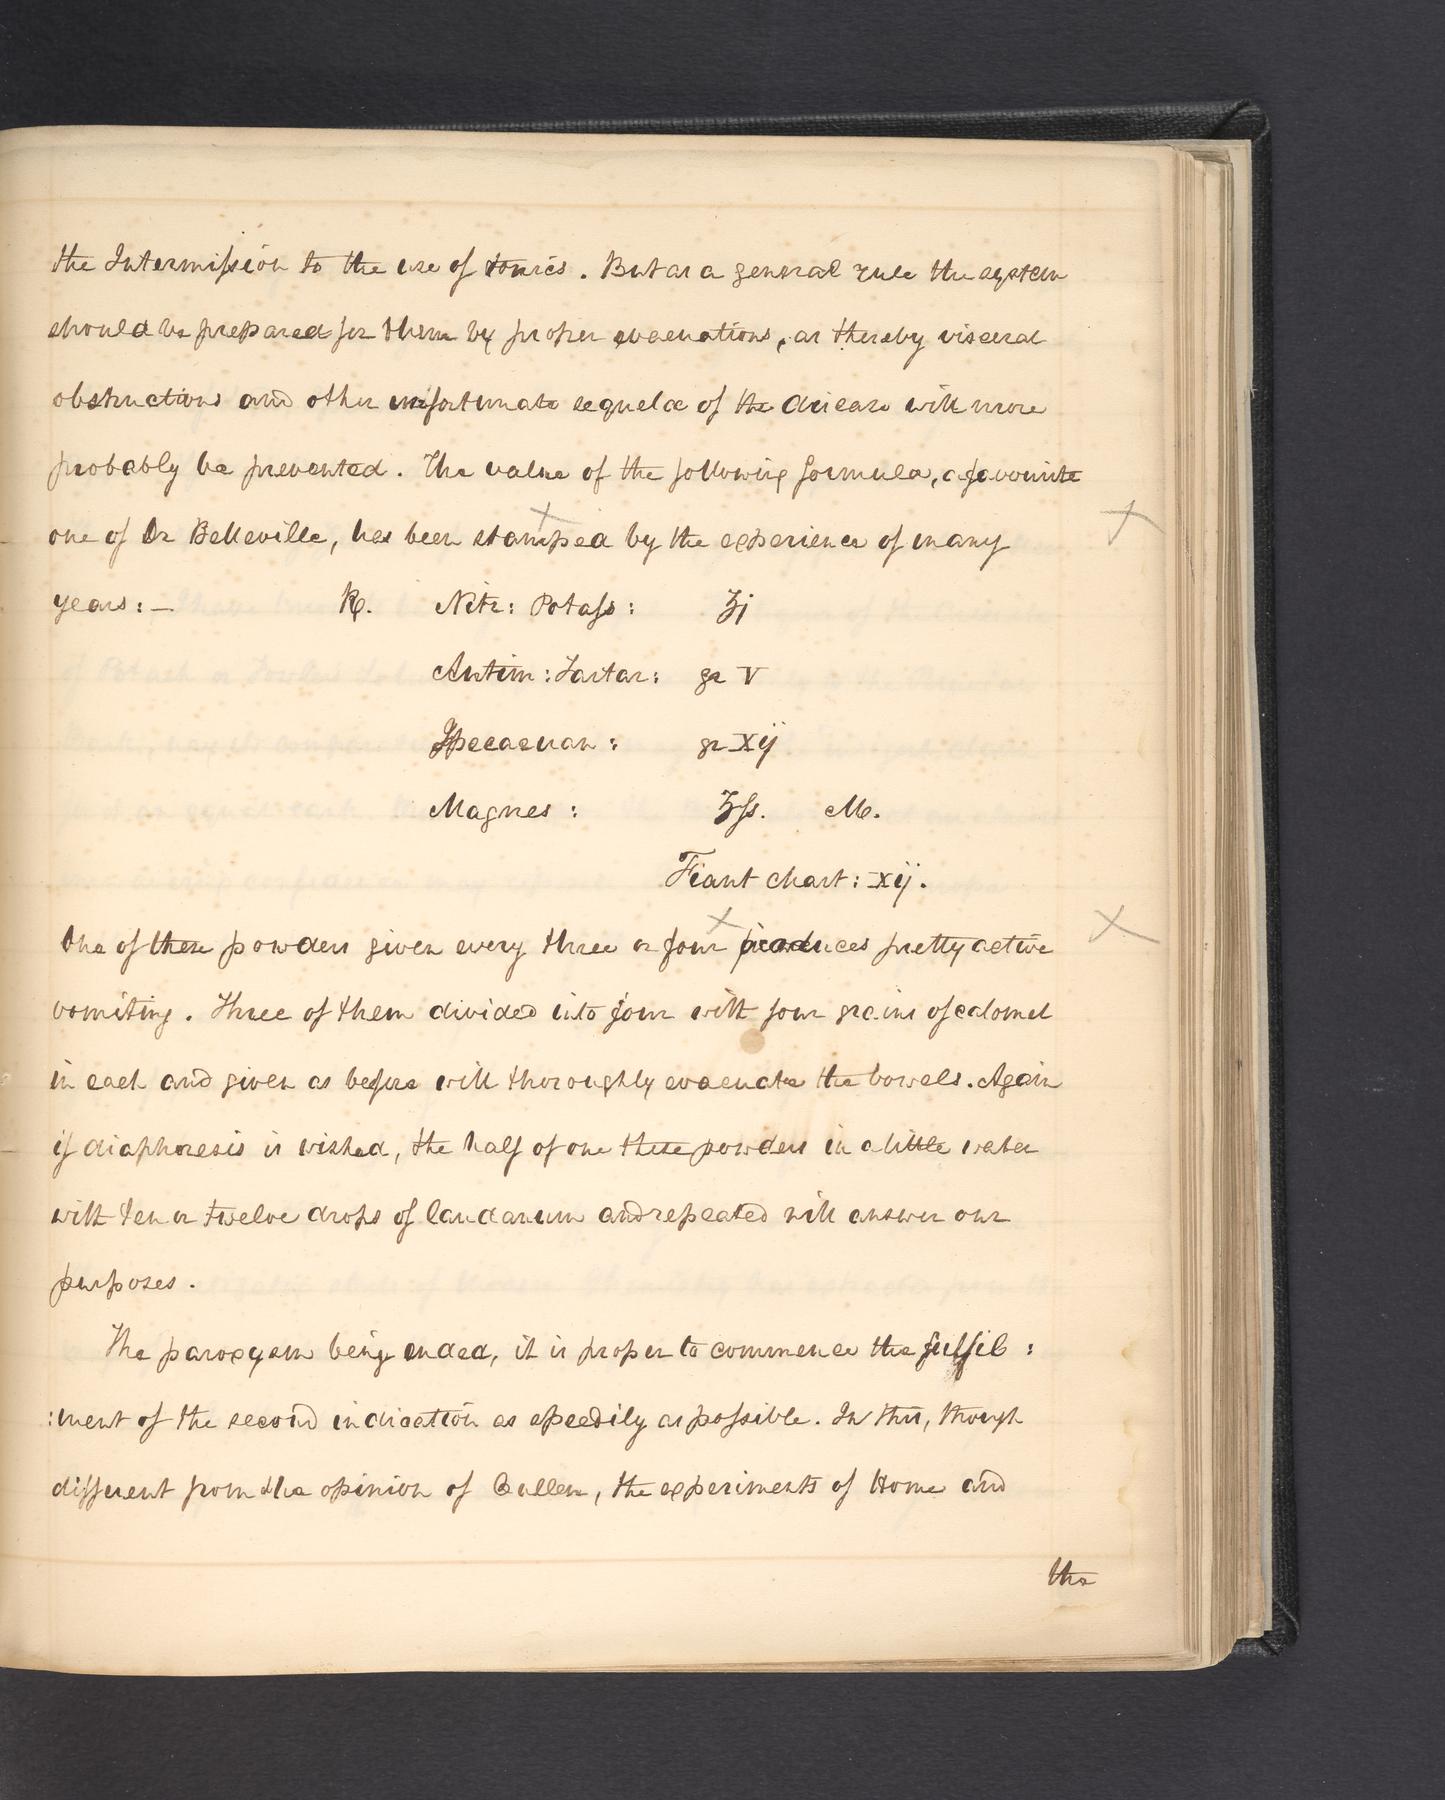 the Intermiſsion to the use of tonics. But as a general rule the system
should be prepared for them by proper evacuations, as thereby visceral
obstructions and other unfortunate sequelæ of the disease will more
probably be prevented. The value of the following formula, a favourite
one of Dr Belleville, has been stamped by the experience of many
years:— ℞. Nitr: Potaſs: ʒj
Antim: Tartar: gr V
Ipecacuan: gr xij
Magnes: ʒſs. M.
Fiant chart: xij.
One of these powders given every three or four produces pretty active
vomiting. Three of them divided into four with four grains of calomel
in each and given as before will thoroughly evacuate the bowels. Again
if diaphoresis is wished, the half of one these powders in a little water
with ten or twelve drops of laudanum and repeated will answer our
purposes.
The paroxysm being ended, it is proper to commence the fulfil:
:ment of the second indication as speedily as poſsible. In this, though
different from the opinion of Cullen, the experiments of Home and
the